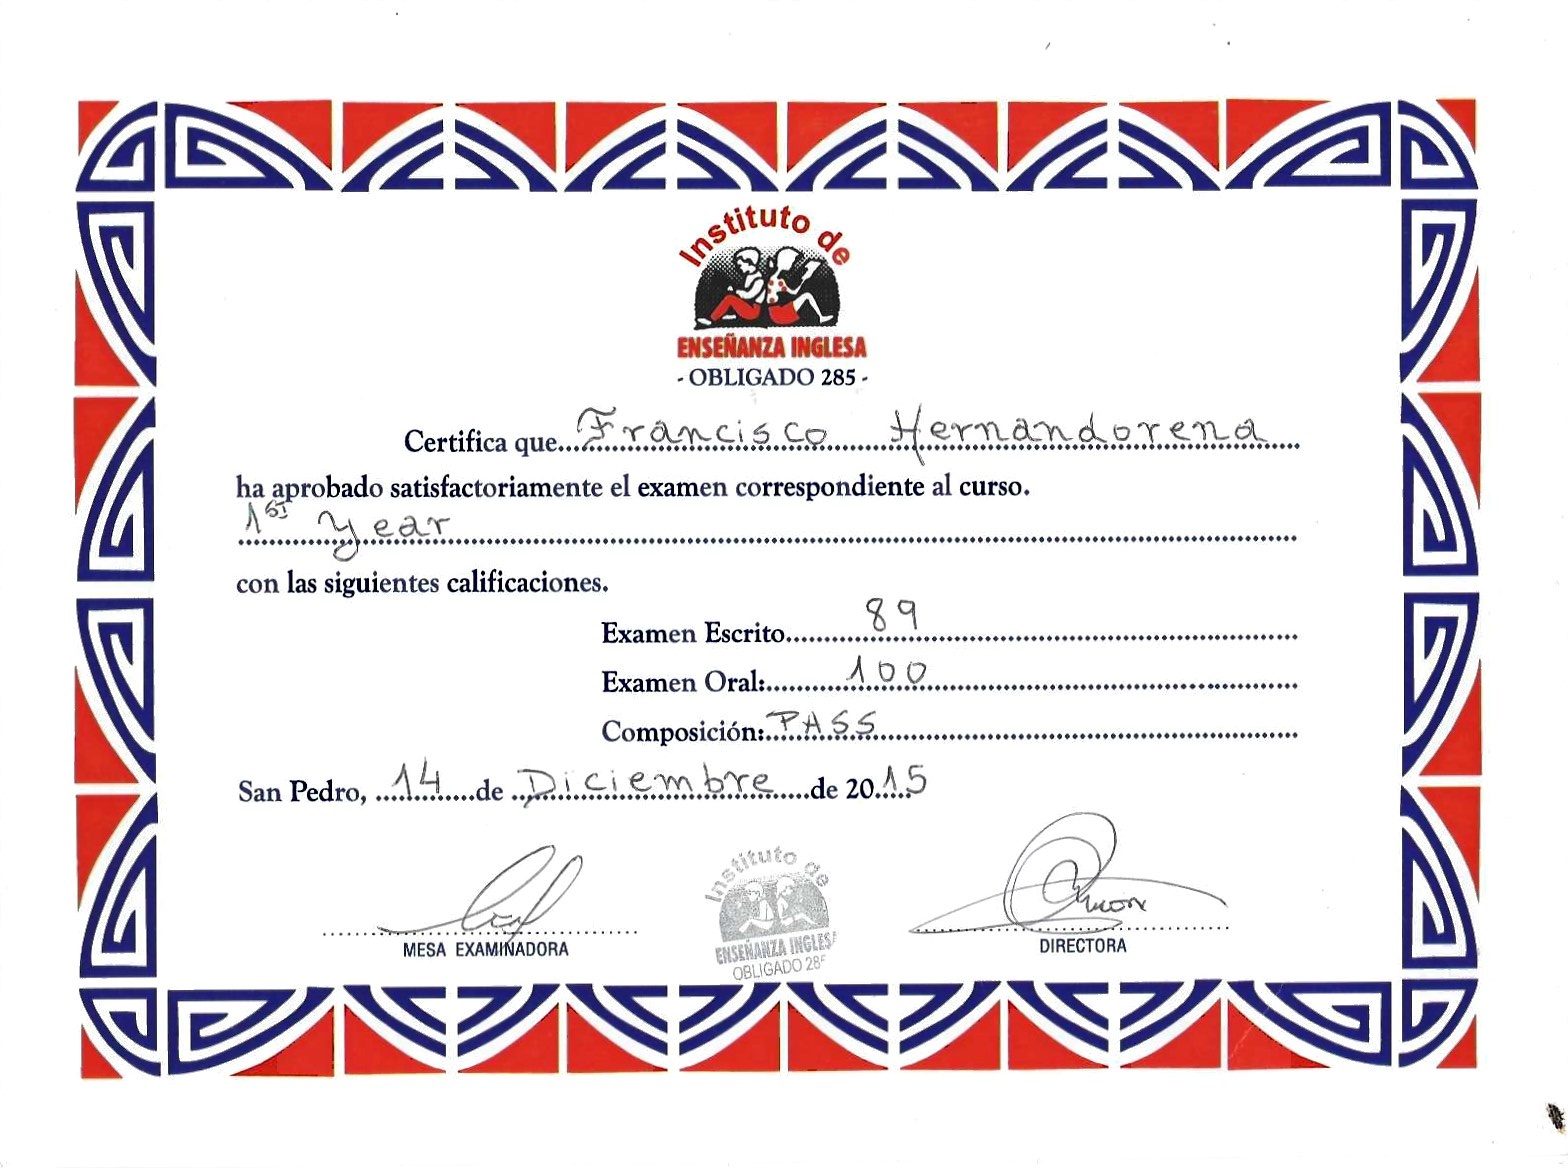 Instituto de
ENSEÑANZA INGLESA
- OBLIGADO 285 -
Certifica que....Francisco Hernandorena
ha aprobado satisfactoriamente el examen correspondiente al curso.
1ST Year
con las siguientes calificaciones.
Examen Escrito....89
Examen Oral:....100
Composición:....PASS
San Pedro, ....14....de ....Diciembre....de 20..15
MESA EXAMINADORA
Instituto de
ENSEÑANZA INGLESA
OBLIGADO 285
DIRECTORA